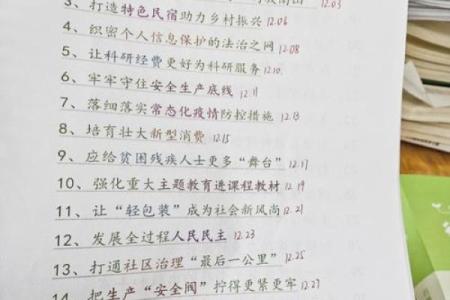 3、打造特色民宿助力乡村振兴 12.06
4、织密个人信息保护的法治之网 12.08
5、让科研经费更好为科研服务 12.10.
6、牢牢守住安全生产底线 12.11
7、落细落实常态化疫情防控措施 12.13
8、培育壮大新型消费 12.15
9、应给贫困残疾人士更多“舞台” 12.17
10、强化重大主题教育进课程教材 12.19
11、让“轻包装”成为社会新风尚 12.21
12、发展全过程人民民主 12.23
13、打通社区治理“最后一公里” 12.25
14、把生产“安全阀”拧得更紧更牢 12.27